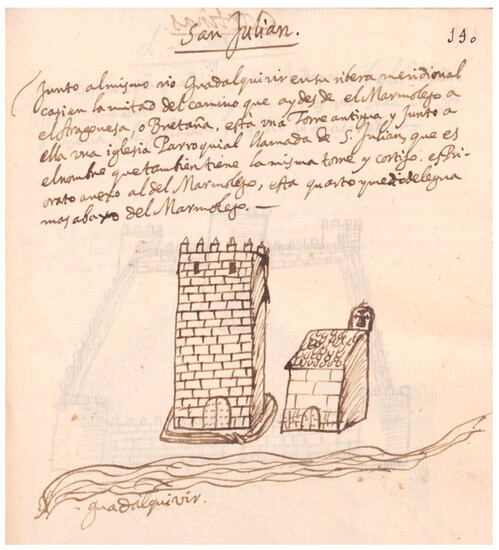 San Julian.
19.
Junto al mismo rio Guadalquivir en su ribera meridional
casi en la mitad del camino que ay desde el Marmolejo a
el Aragonesa, o Bretaña, esta una Torre antigua, y junto a
ella una iglesia Parroquial llamada de S. Julian, que es
el nombre que tambien tiene la misma torre y cortijo. es Pri-
orato anexo al del Marmolejo, esta quarto y medio de legua
mas abaxo del Marmolejo. —
Guadalquivir.